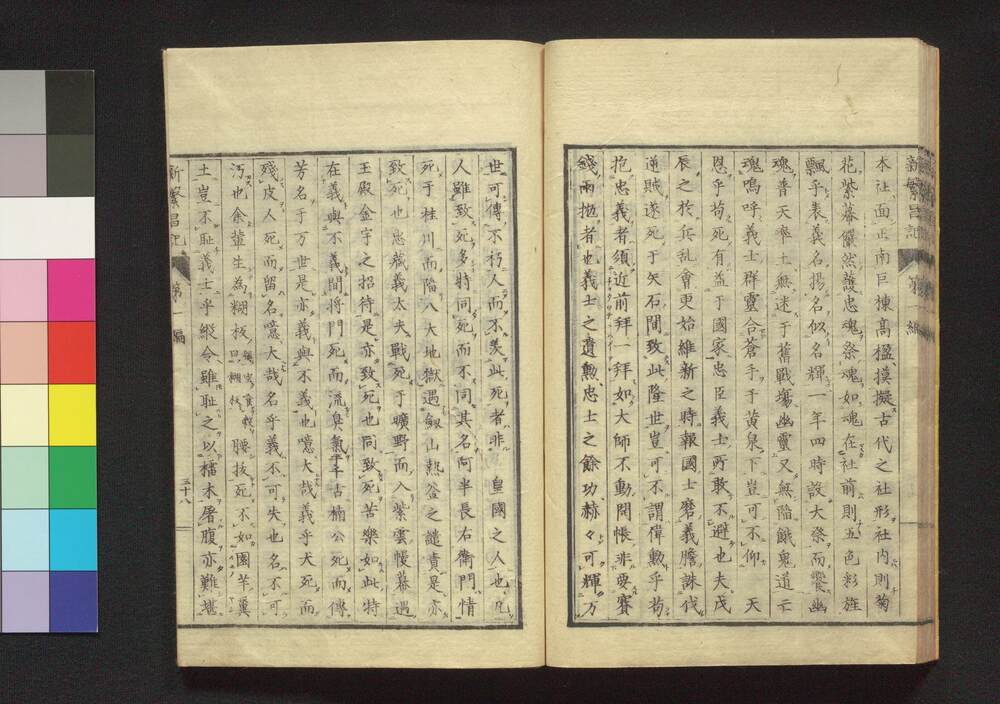 本社面正南巨棟高楹摸擬古代之社形社内則菊
花紫幕儼然護忠魂祭魂如魂在社前則五色彩旌
飄乎表義名揚名似名輝一年四時設大祭而饗幽
魂普天率土無迷于舊戰塲幽靈又無陥餓鬼道云
魂嗚呼義士群靈合蒼手于黄泉下豈可不仰 天
恩乎苟死有益于國家忠臣義士所敢不避也夫戊
辰之於兵亂會更始維新之時報國士磨義膽誅伐
逆賊遂死于矢石間致此隆世豈可不謂偉勲乎苟
抱忠義者須近前拜一拜如大師不動開帳非要賽
錢兩抛者也義士之遺勲忠士之餘功赫々可輝万
世可傳不朽人而不羨此死者非 皇國之人也凡
人雖致死多時同死而不同其名阿半長右衛門情
死于桂川而陥八大地獄遇劔山熱釜之譴責是亦
致死也忠藏義太夫戰死于曠野而入紫雲幔幕遇
王殿金宇之招待是亦致死也同致死苦樂如此特
在義與不義間將門死而流臭氣千古楠公死而傳
芳名于万世是亦義與不義也噫大哉義乎犬死而
殘皮人死而留名噫大哉名乎義不可失也名不可
汚也余輩生為糊板腰抜死不如園羊糞
土豈不恥義士乎縱令雖恥之以橘木屠腹亦難堪
新繁昌記 第一編 三十八